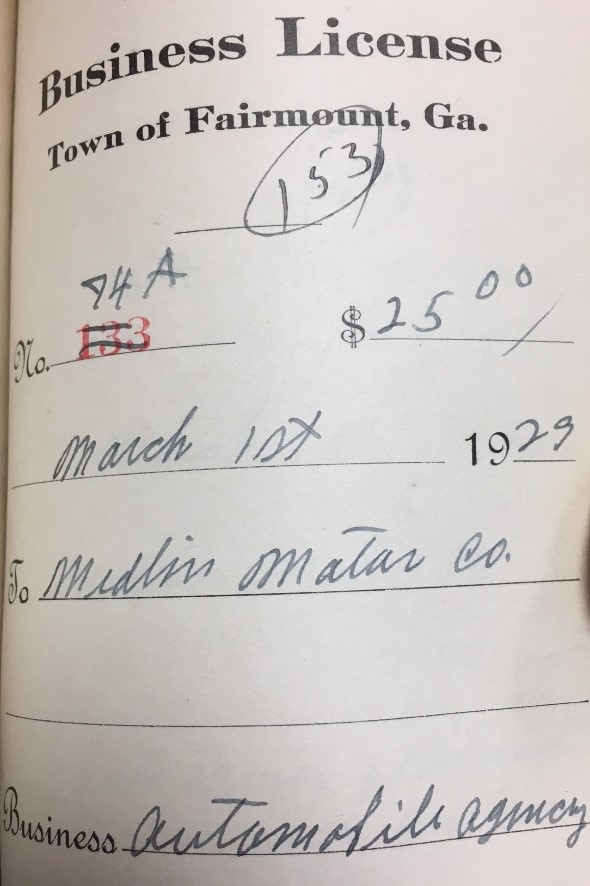 Business License
Town of Fairmount, Ga.
153
94 A
No. 133
$ 25 00/
March 1st 1929
To Medlin Motor Co.
Business Automobile agency